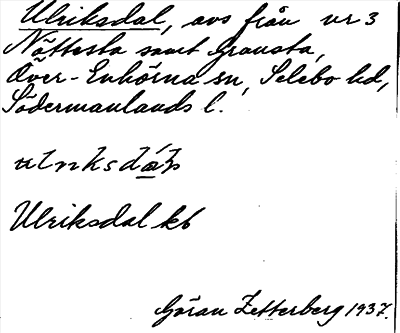 Ulriksdal, avs från nr 3
Nättesta samt Gransta,
Över-Enhörna sn, Selebo hd,
Södermanlands l.
Ulriksdal kb
Göran Zetterberg 1937.